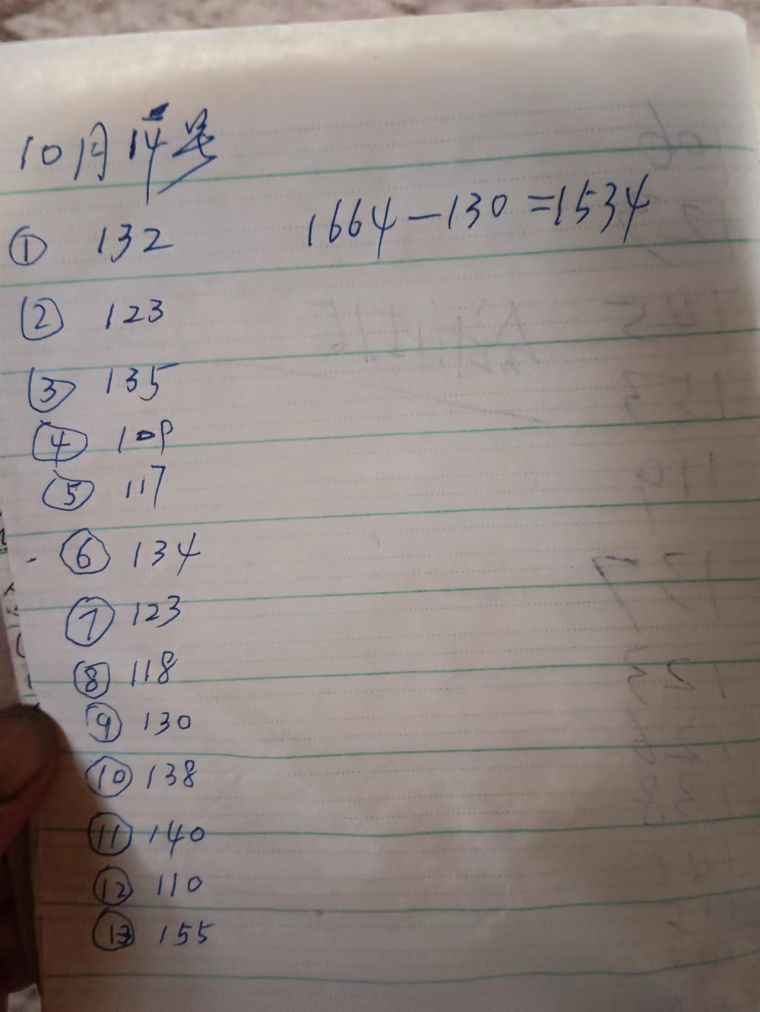 10月14号
1664-130=1534
① 132
② 123
③ 135
④ 109
⑤ 117
⑥ 134
⑦ 123
⑧ 118
⑨ 130
⑩ 138
⑪ 140
⑫ 110
⑬ 155